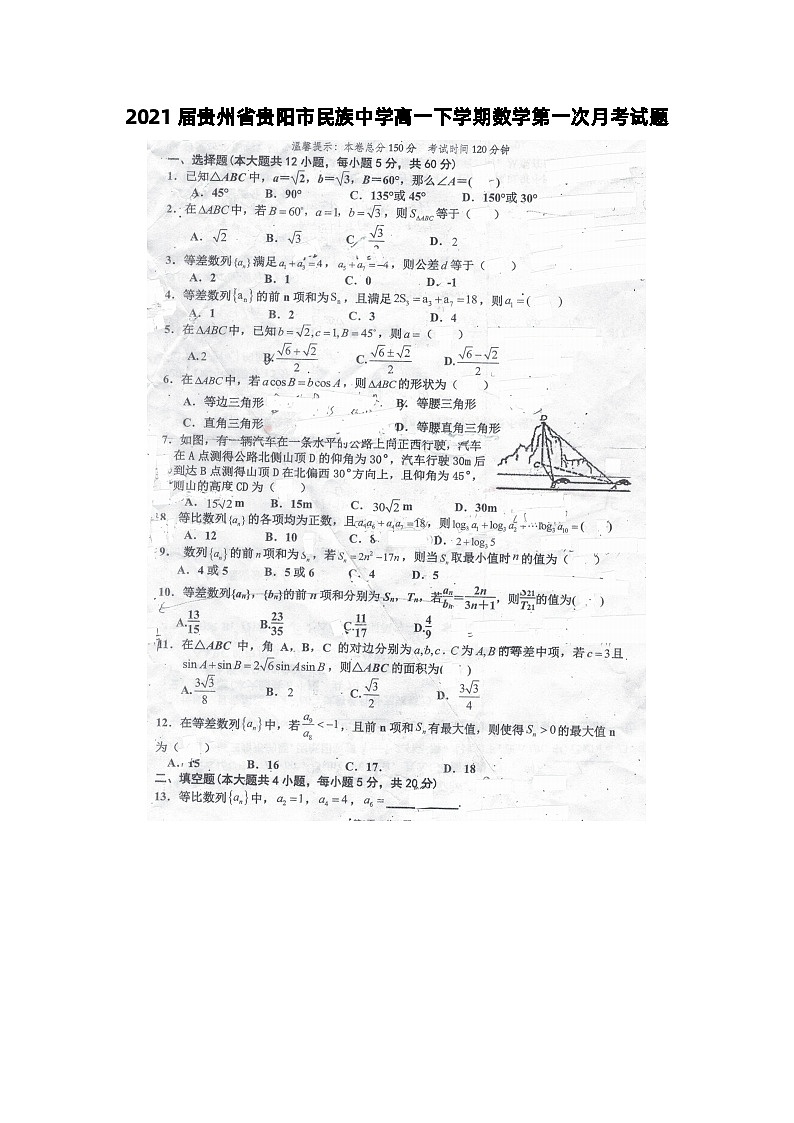 2021 届贵州省贵阳市民族中学高一下学期数学第一次月考试题
温馨提示：本卷总分 150 分 考试时间 120 分钟
一、选择题(本大题共 12 小题，每小题 5 分，共 60 分)
1．已知△ABC 中，a＝√2，b＝√3，B＝60°，那么∠A＝( )
A．45° B．90° C．135°或 45° D．150°或 30°
2．在△ABC中，若 B＝60°，a＝1，b＝√3，则 S△ABC 等于（ ）
A．√2 B．√3 C √3/2 D．2
3．等差数列{aₙ}满足 a₁+a₃＝4，a₅+a₇＝−4，则公差 d 等于（ ）
A．2 B．1 C．0 D．-1
4．等差数列{aₙ}的前 n 项和为 Sₙ，且满足 2S₃＝a₃+a₇＝18，则 a₁＝( )
A．1 B．2 C．3 D．4
5．在△ABC中，已知 b＝√2,c＝1,B＝45°，则 a＝（ ）
A.2 B.(√6+√2)/2 C.(√6±√2)/2 D.(√6−√2)/2
6．在△ABC中，若 acosB＝bcosA，则△ABC的形状为（ ）
A．等边三角形 B．等腰三角形
C．直角三角形 D．等腰直角三角形
7．如图，有一辆汽车在一条水平的公路上向正西行驶，汽车
在 A 点测得公路北侧山顶 D 的仰角为 30°，汽车行驶 30m 后
到达 B 点测得山顶 D 在北偏西 30°方向上，且仰角为 45°，
则山的高度 CD 为（ ）
A．15√2 m B．15m C．30√2 m D．30m
D
C
B
A
8 等比数列{aₙ}的各项均为正数，且 a₅a₆+a₄a₇＝18，则 log₃a₁+log₃a₂+⋯log₃a₁₀＝( )
A．12 B．10 C．8 D．2+log₃5
9．数列{aₙ}的前 n 项和为 Sₙ，若 Sₙ＝2n²−17n，则当 Sₙ 取最小值时 n 的值为（ ）
A．4 或 5 B．5 或 6 C．4 D．5
10．等差数列{aₙ}，{bₙ}的前 n 项和分别为 Sₙ，Tₙ，若 aₙ/bₙ＝2n/(3n＋1)，则 S21/T21 的值为( )
A.13/15 B.23/35 C.11/17 D.4/9
11．在△ABC 中，角 A，B，C 的对边分别为 a,b,c．C 为 A,B 的等差中项，若 c＝3 且
sinA+sinB＝2√6sinAsinB，则△ABC 的面积为( )
A.3√3/8 B．2 C.√3/2 D．3√3/4
12．在等差数列{aₙ}中，若 a₉/a₈＜−1，且前 n 项和 Sₙ 有最大值，则使得 Sₙ＞0 的最大值 n
为（ ）
A．15 B．16 C．17. D．18
二、填空题(本大题共 4 小题，每小题 5 分，共 20 分)
13．等比数列{aₙ}中，a₂＝1，a₄＝4，a₆＝________．